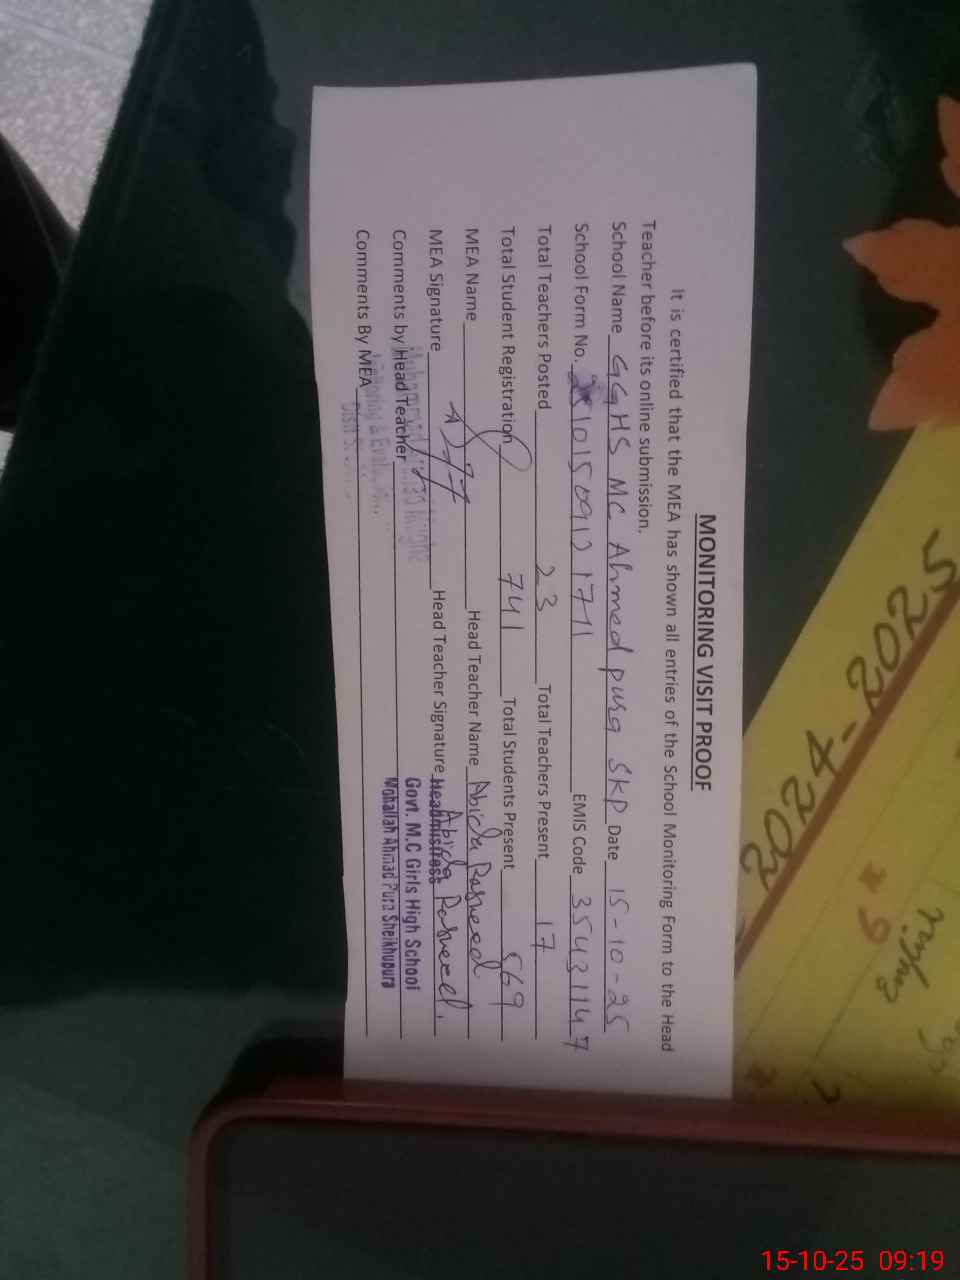 MONITORING VISIT PROOF
It is certified that the MEA has shown all entries of the School Monitoring Form to the Head
Teacher before its online submission.
School Name GGHS MC Ahmed pura SKP Date 15-10-25
School Form No. 1015091217 11 EMIS Code 35431147
Total Teachers Posted 23 Total Teachers Present 17
Total Student Registration 741 Total Students Present 569
MEA Name Head Teacher Name Abida Rasheed
MEA Signature Head Teacher Signature Abida Rasheed.
Headmistress
Comments by Head Teacher
Govt. M.C Girls High School
Mohallah Ahmad Pura Sheikhupura
Comments By MEA
2024-2025
6
English
15-10-25 09:19